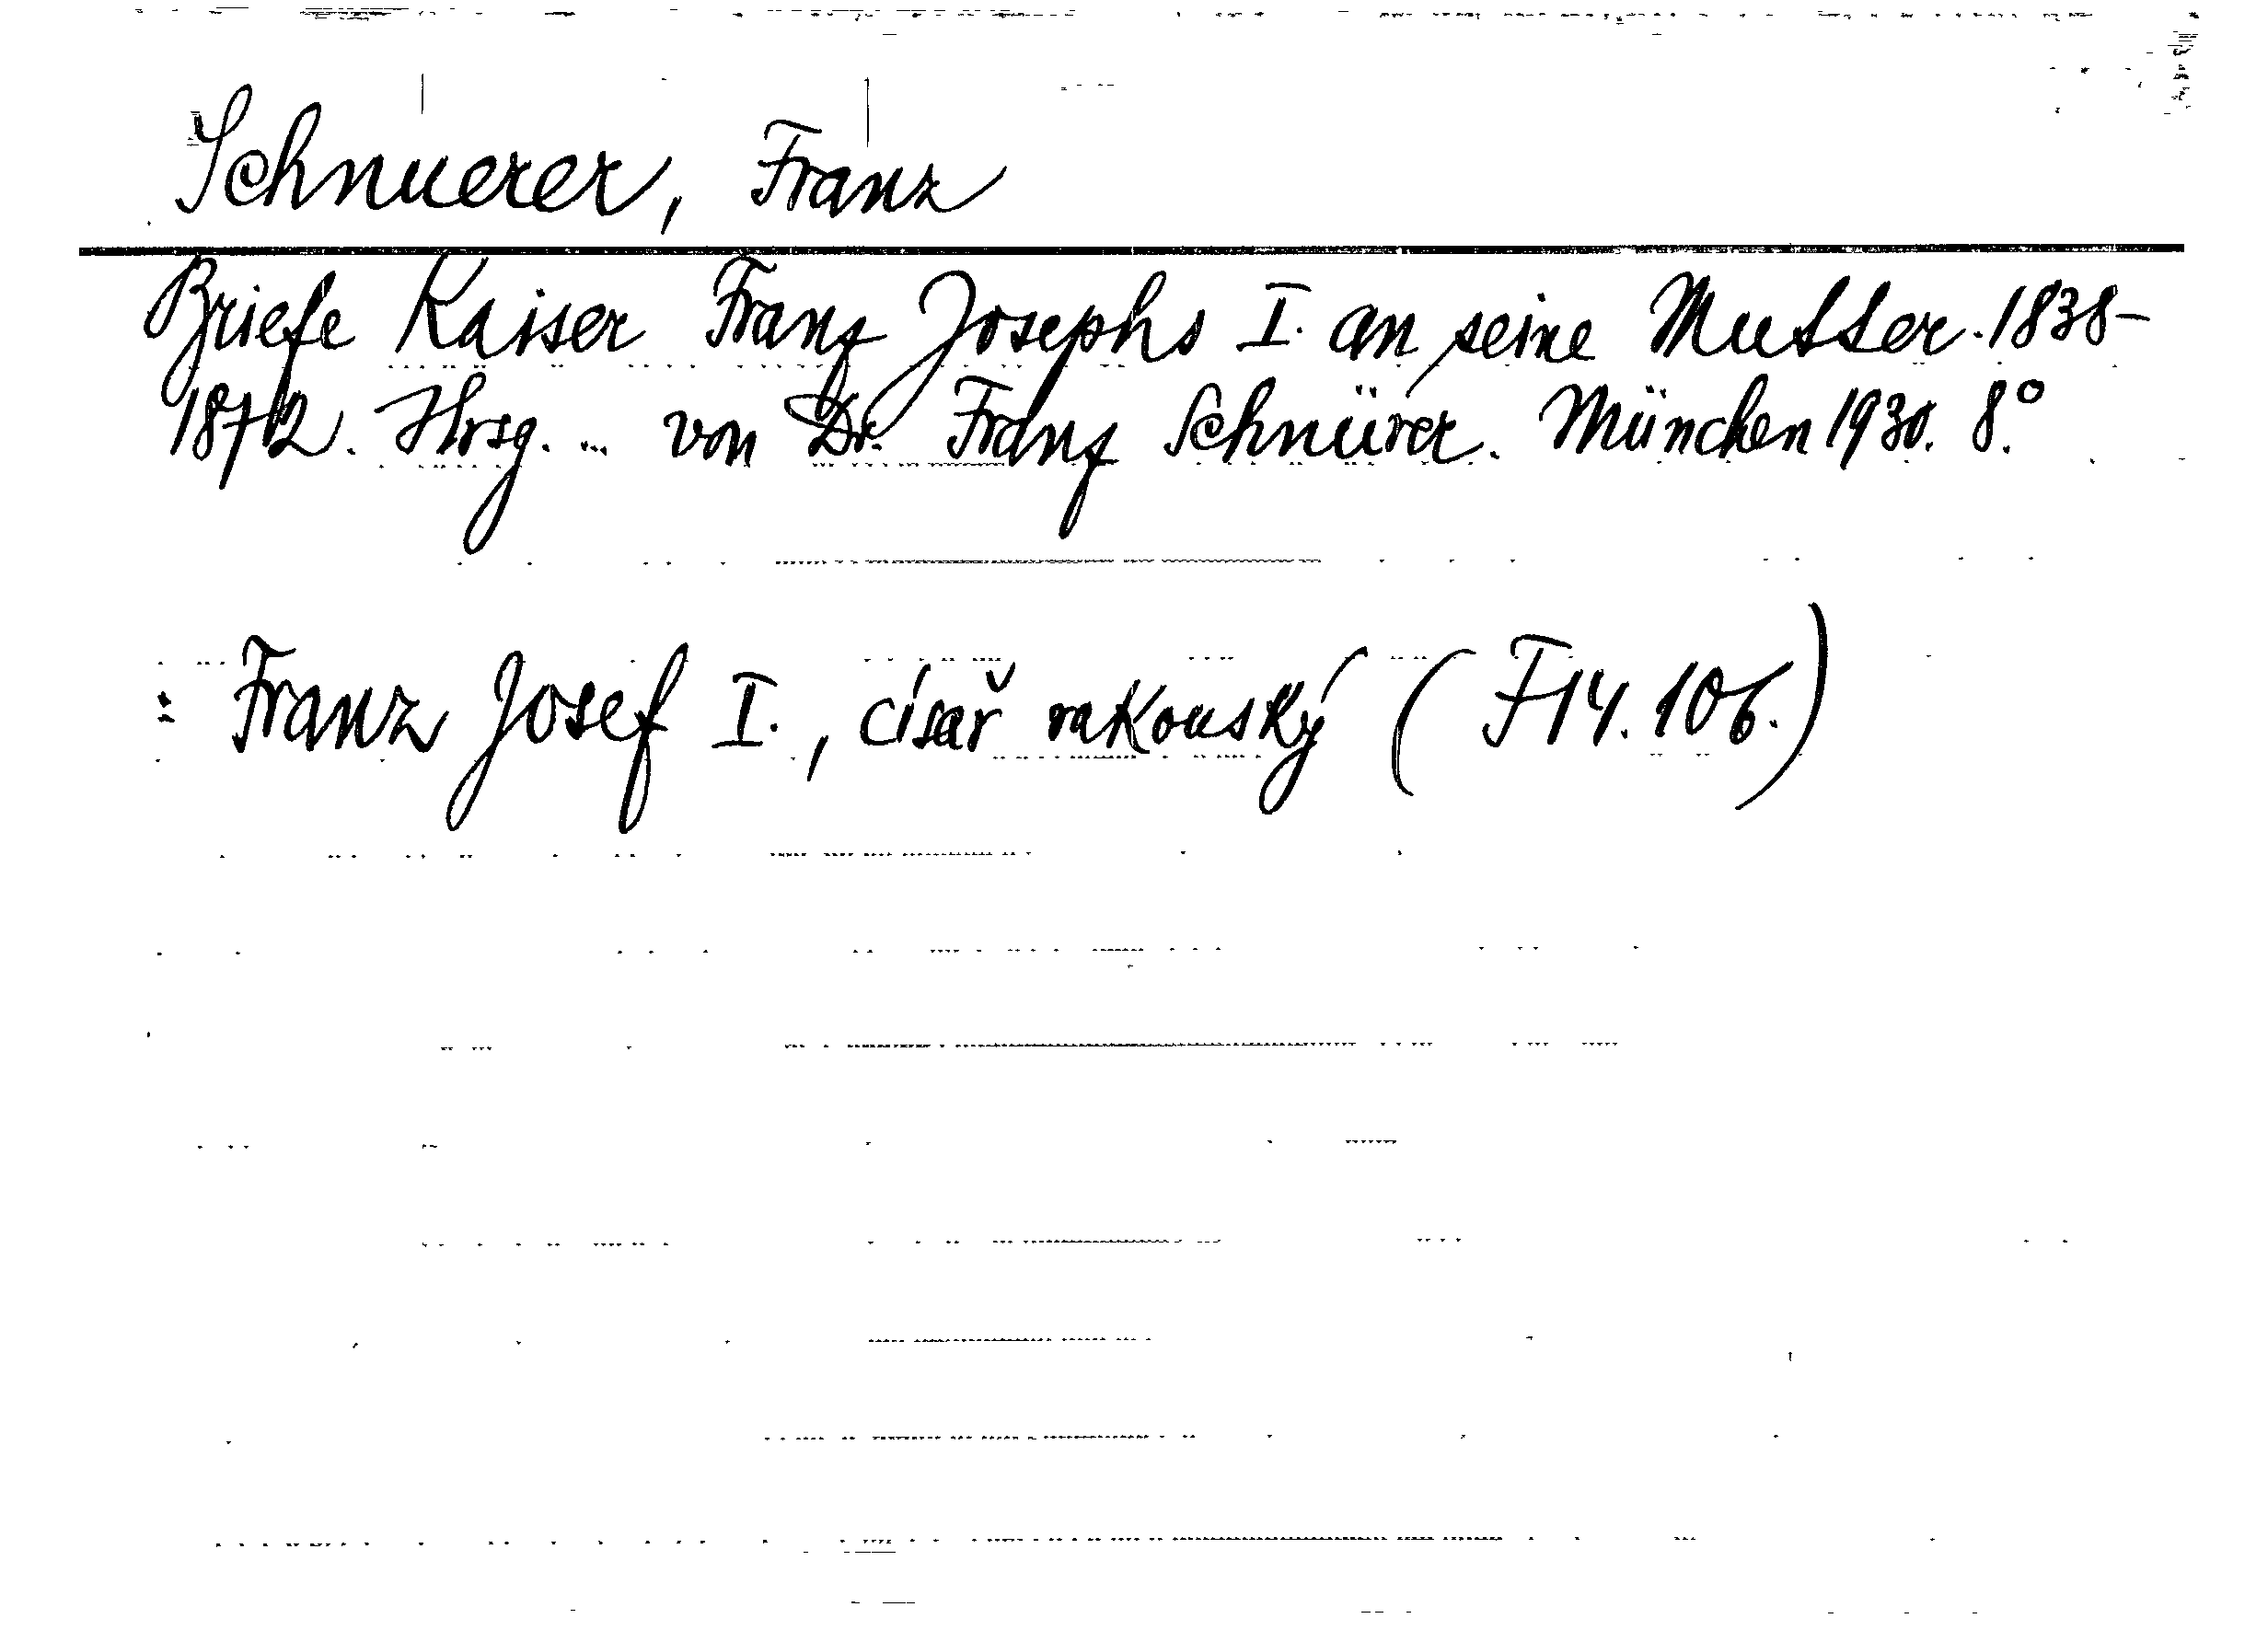 Schnuerer, Franz
Briefe Kaiser Franz Josephs I. an seine Mutter. 1838-
1872. Hrsg. ... von Dr. Franz Schnürer. München 1930. 8.°
: Franz Josef I., císař rakouský (F14.106.)